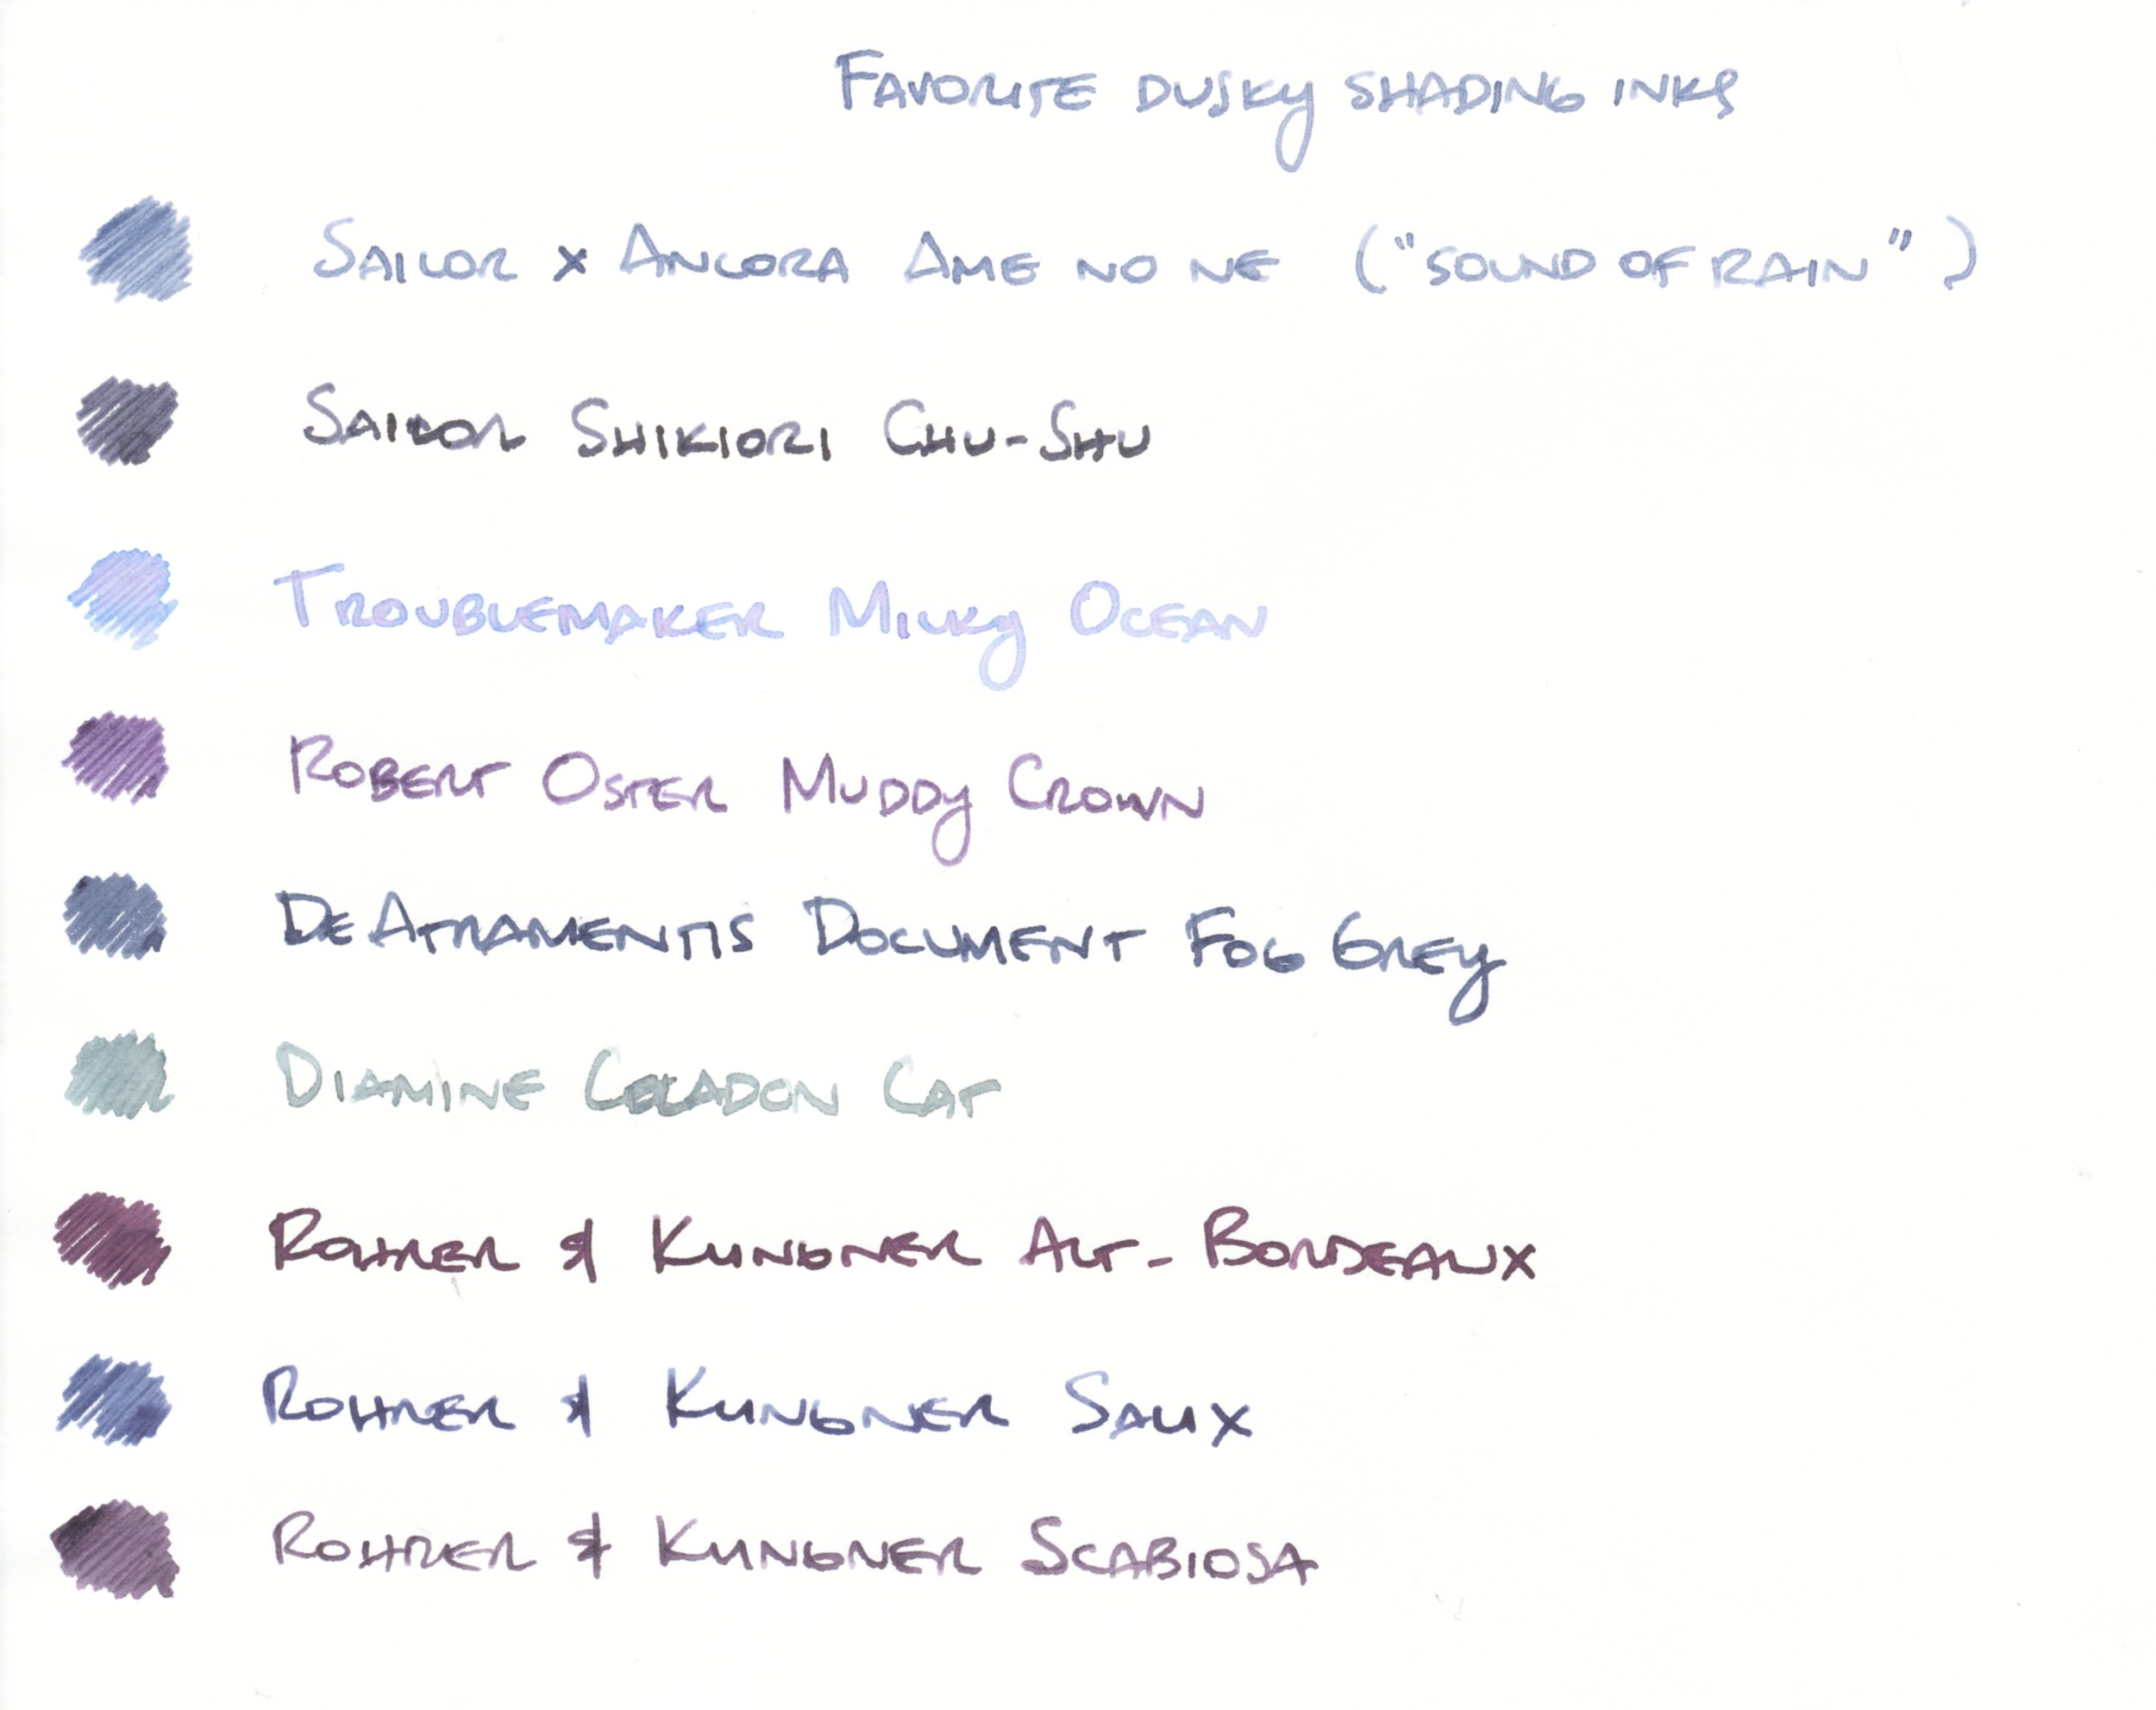 Favorite dusky shading inks
Sailor x Ancora Ame no ne ("sound of rain")
Sailor Shikiori Chu-Shu
Troublemaker Milky Ocean
Robert Oster Muddy Crown
De Atramentis Document Fog Grey
Diamine Celadon Cat
Rohrer & Klingner Alt-Bordeaux
Rohrer & Klingner Salix
Rohrer & Klingner Scabiosa